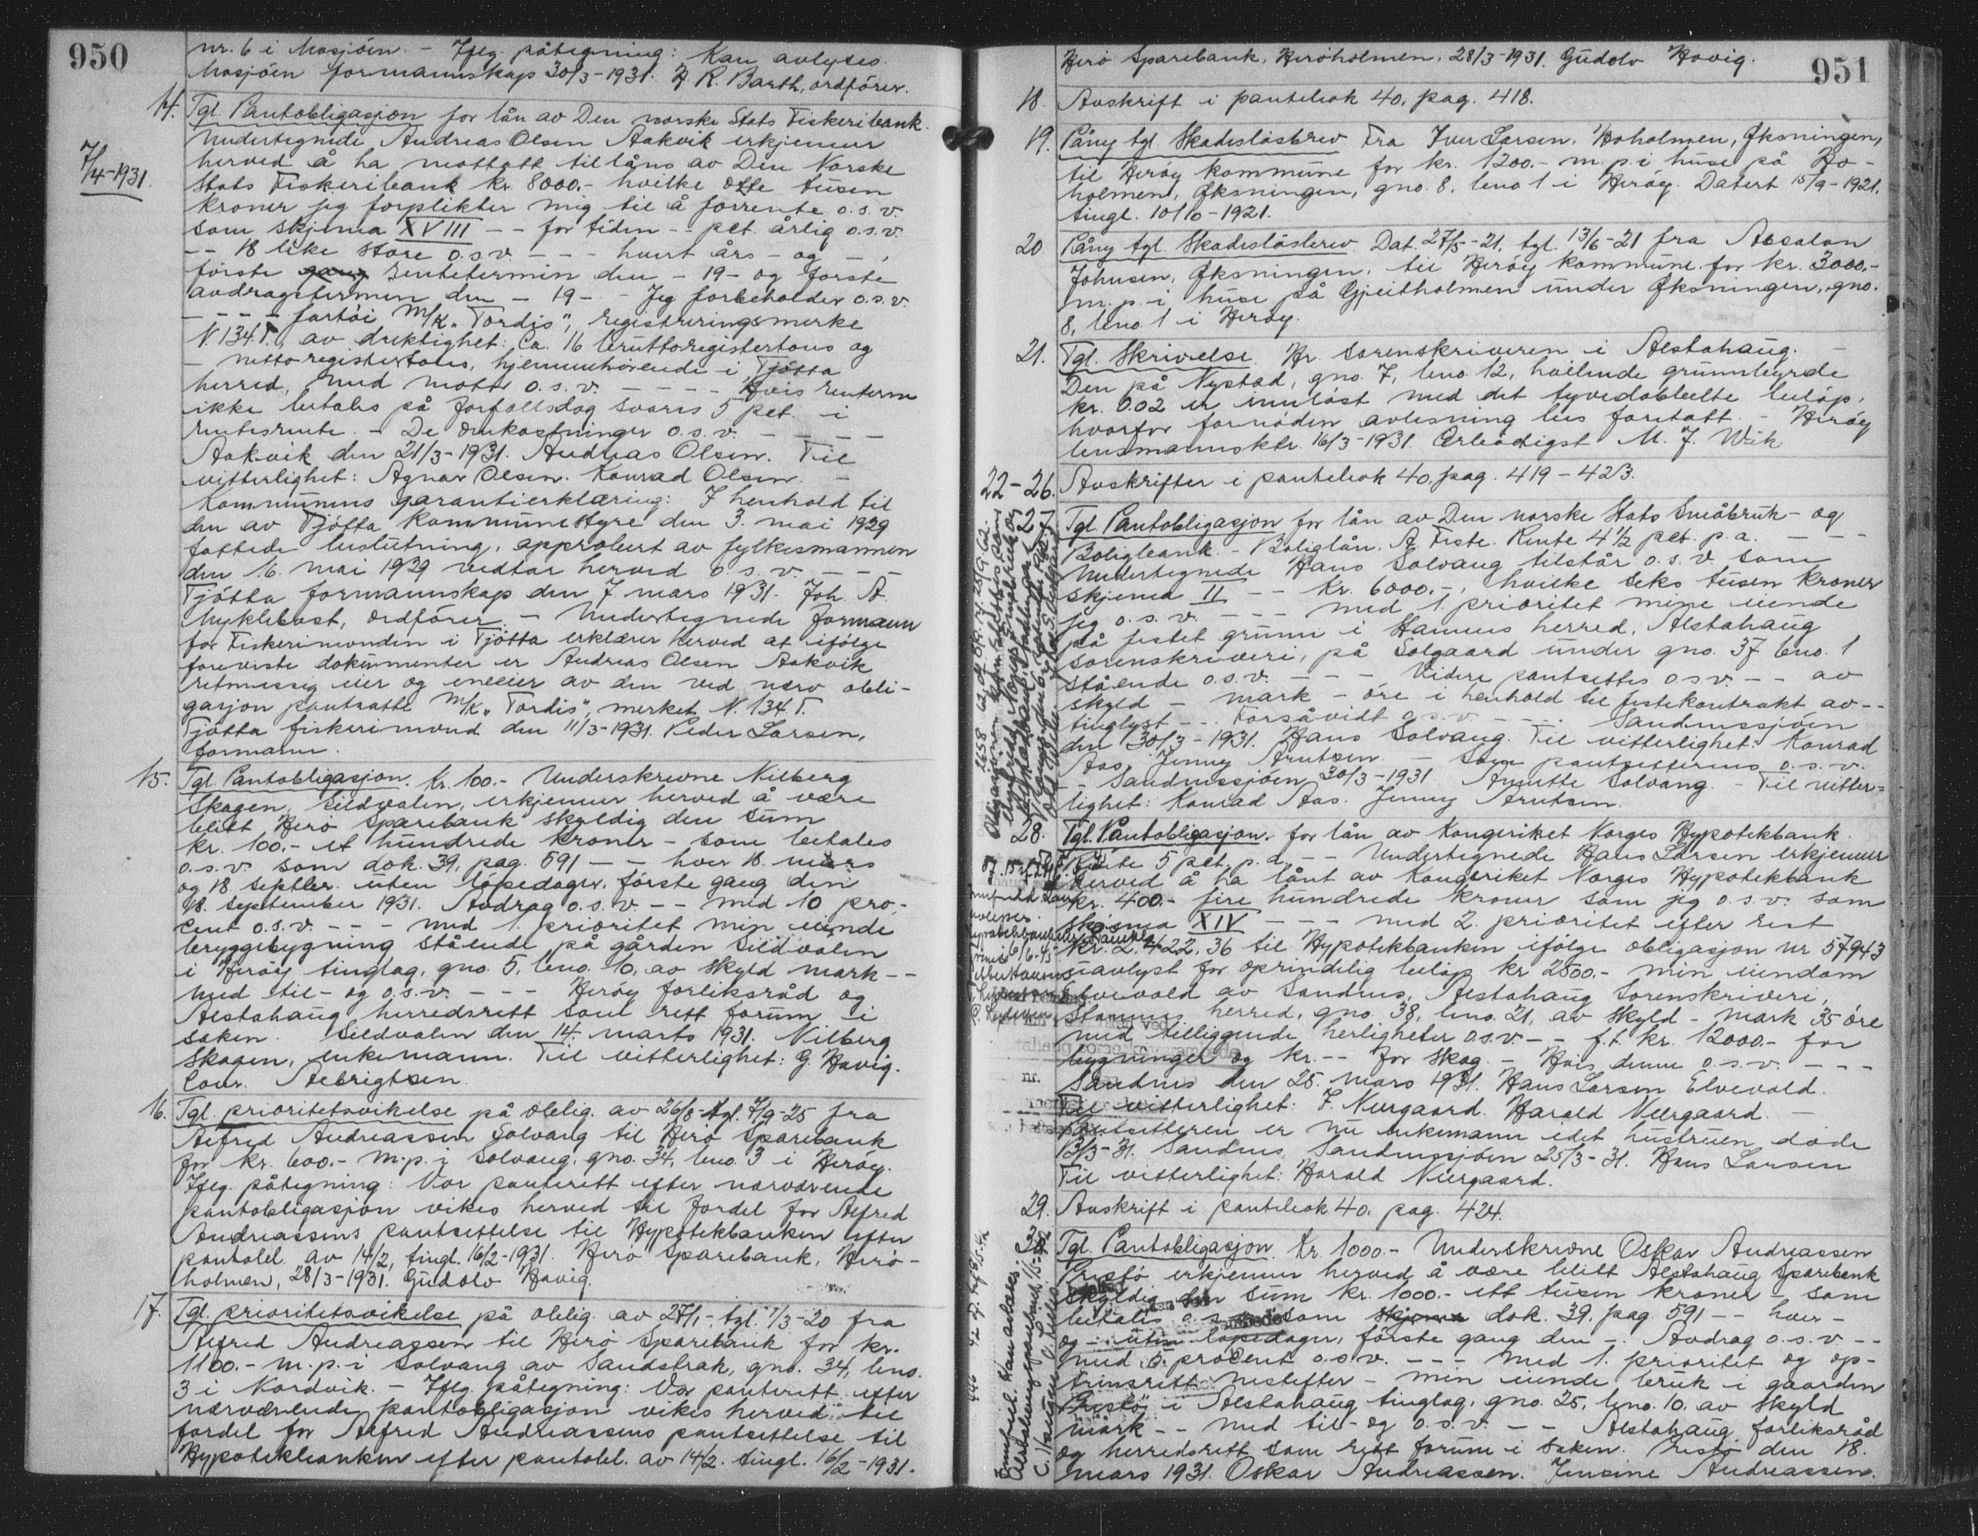 950
nr. 6 i Mosjöen. - Iflg. påtegning: Kan avlyses.
Mosjöen formannskap 30/3-1931. R. Barth, ordförer.
14. Tgl. Pantobligasjon for lån av Den norske Stats Fiskeribank.
7/4-1931.
Undertegnede Andreas Olsen Aakvik erkjenner
herved å ha mottatt tillåns av Den Norske
Stats Fiskeribank kr. 8000.- hvilke otte tusen
kroner jeg forplikter mig til å forrente o.s.v.
som skjema XVIII -- for tiden - pct. årlig o.s.v.
-- 18 like store o.s.v. --- hvert års - og -,
förste gang Rentetermin den - 19 - og förste
avdragstermin den - 19 - - Jeg forbeholder o.s.v.
---- fartöi M/K. "Tordis", registreringsmerke
N. 134 T., av drektighet: ca. 16 bruttoregistertons og
- nettoregistertons, hjemmehörende i Tjötta
herred, med motor o.s.v. ---- Hvis renterne
ikke betales på forfallsdag svares 5 pct. i
rentesrente. - De omkostninger o.s.v. ----
Aakvik den 21/3-1931. Andreas Olsen. Til
vitterlighet: Agnar Olsen. Konrad Olsen. -
Kommunens garantierklæring: I henhold til
den av Tjötta kommunestyre den 3. mai 1929
fattede beslutning, approbert av fylkesmannen
den 16. mai 1929 vedtar herved o.s.v. ---
Tjötta formannskap den 7 mars 1931. Joh. A.
Myklebost, ordförer. - Undertegnede formann
for Fiskerinemnden i Tjötta erklærer herved at ifölge
foreviste dokumenter er Andreas Olsen Aakvik
retmessig eier og eneeier av den ved nærv. obli-
gasjon pantsatte M/K. "Tordis", merket N. 134 T.
Tjötta fiskerinemnd den 11/3-1931. Peder Larsen,
formann.
15. Tgl. Pantobligasjon. Kr. 100.- Underskrevne Nilberg
Skagen, Sildvalen, erkjenner herved å være
blitt Herö Sparebank skyldig den sum
kr. 100.- et hundrede kroner - som betales
o.s.v. som dok. 39, pag. 591 -- hver 18. mars
og 18. septbr. uten löpedager, förste gang den
18. september 1931. Avdrag o.s.v. -- med 10 pro-
cent o.s.v. --- med 1. prioritet min eiende
bryggebygning stående på gården Sildvalen
i Heröy tinglag, gno. 5, bno. 10, av skyld mark --
med til- og o.s.v. --- Heröy forliksråd og
Alstahaug herredsrett som rett forum i
saken. Sildvalen den 14. marts 1931. Nilberg
Skagen, enkemann. Til vitterlighet: G. Hovig.
Conr. Aebrigtsen.
16. Tgl. prioritetsvikelse på oblig. av 26/8 - tgl. 7/9-25 fra
Alfred Andreassen Solvang til Herö Sparebank
for kr. 600.- m.p.i Solvang, gno. 34, bno. 3 i Heröy.
Iflg. påtegning: Vor panterett efter nærværende
pantobligasjon vikes herved til fordel for Alfred
Andreassens pantsettelse til Hypotekbanken efter
pantobl. av 14/2, tingl. 16/2-1931. Herö Sparebank, Herö-
holmen, 28/3-1931. Gudolv Hovig.
17. Tgl. prioritetsvikelse på oblig. av 27/1 - tgl. 1/3-20 fra
Alfred Andreassen til Herö Sparebank for kr.
1100.- m.p.i Solvang av Sandstrak, gno. 34, bno.
3 i Nordvik. - Iflg. påtegning: Vor panterett efter
nærværende pantobligasjon vikes herved til
fordel for Alfred Andreassens pantsettelse til
Hypotekbanken efter pantobl. av 14/2. tingl. 16/2-1931.
951
Herö Sparebank, Heröholmen, 28/3-1931. Gudolv Hovig.
18. Avskrift i pantebok 40, pag. 418.
19. Påny tgl. Skadeslösbrev Fra Iver Larsen, Hoholmen, Öksningen,
til Heröy kommune for kr. 1200.- m.p.i huse på Ho-
holmen, Öksningen, gno. 8, bno 1 i Heröy. Datert 15/9-1921,
tingl. 10/10-1921.
20 Påny tgl. Skadeslösbrev. Dat. 27/5-21, tgl. 13/6-21 fra Absalon
Johnsen, Öksningen, til Heröy kommune for kr. 3000.-
m.p.i huse på Gjeitholmen under Öksningen, gno.
8, bno. 1 i Heröy.
21. Tgl. Skrivelse. Hr. Sorenskriveren i Alstahaug. -
Den på Nystad, gno. 7, bno. 12, hvilende grunnbyrde
kr. 0.02 er innlöst med det tyvedobbelte belöp,
hvorfor fornöden avlesning bes foretatt. - Heröy
lensmannsktr. 16/3-1931. Ærbödigst M. J. Wik
22-26. Avskrifter i pantebok 40, pag. 419-423.
27 Tgl. Pantobligasjon for lån av Den norske Stats Småbruk- og
Boligbank. - Boliglån. A. Feste. Rente 4½ pct. p.a. ---
Undertegnede Hans Solvang tilstår o.s.v. som
skjema II -- Kr. 6000.-, hvilke seks tusen kroner
jeg o.s.v. ---- med 1. prioritet mine eiende
på festet grunn i Stamnes herred, Alstahaug
sorenskriveri, på Solgaard under gno. 37 bno. 1
stående o.s.v. --- Videre pantsettes o.s.v. -- av
skyld - mark - öre i henhold til festekontrakt av --
tinglyst --- Forsåvidt o.s.v. --- Sandnessjöen
den 30/3-1931. Hans Solvang. Til vitterlighet: Konrad
Aas. Jenny Arntsen. - Som pantsetterens o.s.v.
- Sandnessjöen 30/3-1931 Annette Solvang. - Til vitter=
lighet: Konrad Aas. Jenny Arntsen.
28. Tgl. Pantobligasjon. for lån av Kongeriket Norges Hypotekbank.
Rente 5 pct. p.a. -- Undertegnede Hans Larsen erkjenner
herved å ha lånt av Kongeriket Norges Hypotekbank
kr. 400.- fire hundrede kroner som jeg o.s.v. som
skjema XIV ---- med 2. prioritet efter rest
kr. 2,422.36 til Hypotekbanken ifölge obligasjon nr 57943
avlyst for oprindelig belöp kr 2500.- min eiendom
Elvevold av Sandnes, Alstahaug Sorenskriveri,
Stamnes herred, gno. 38, bno. 21, av skyld - mark 35 öre
med tilliggende herligheter o.s.v. -- f.t. kr. 12000.- for
bygninger og kr. -- for skog. - Hvis denne o.s.v. ---
Sandnes den 25. mars 1931. Hans Larsen Elvevold.
Til vitterlighet: F. Neergaard. Harald Neergaard.
Pantsetteren er nu enkemann idet hustruen döde
13/3-31. Sandnes, Sandnessjöen 25/3-31. Hans Larsen
Til vitterlighet: Harald Neergaard.
29. Avskrift i pantebok 40, pag. 424.
30 Tgl. Pantobligasjon. Kr. 1000.- Underskrevne Oskar Andreassen
Prestö erkjenner herved å være blitt Alstahaug Sparebank
skyldig den sum kr. 1000.- ett tusen kroner - som
betales o.s.v. som skjema dok. 39, pag. 591 -- hver -
og - uten löpedager, förste gang den -. Avdrag o.s.v. --
med 5 procent o.s.v. --- med 1. prioritet og op-
trinsrett nestefter - min eiende bruk i gaarden
Prestöy i Alstahaug tinglag, gno. 25, bno. 10, av skyld
mark -- med til- og o.s.v. -- - Alstahaug forliksråd
og herredsrett som rett forum i saken. Prestö den 18.
mars 1931 Oskar Andreassen. Jensine Andreassen.